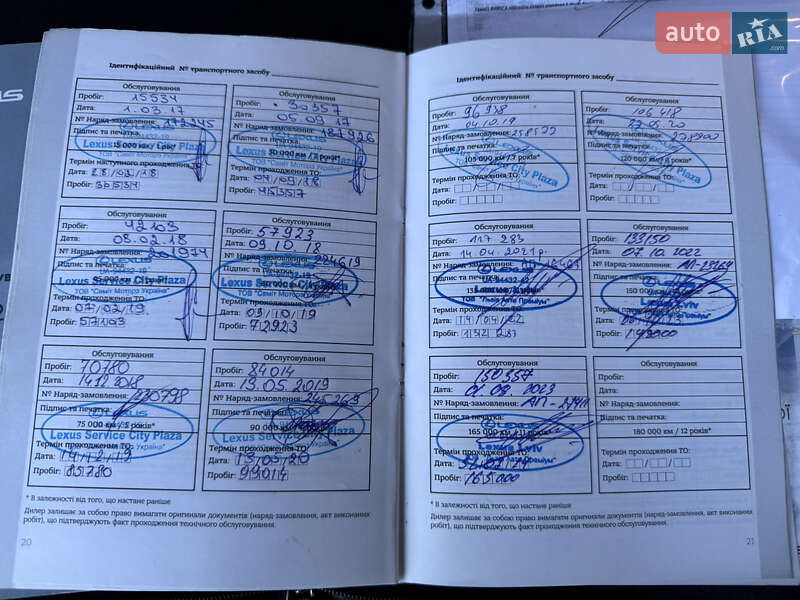 auto RIA
Ідентифікаційний № транспортного засобу
Обслуговування
Пробіг: 15534
Дата: 1.03.17
№ Наряд-замовлення:
Підпис та печатка:
15 000 км / 1 рік*
Lexus City Plaza
ТОВ "Саміт Моторз Україна"
Термін наступного проходження
Дата: 28/02/18
Пробіг: 30534
Обслуговування
Пробіг: 30357
Дата: 05.09.17
№ Наряд-замовлення: 187926
Підпис та печатка:
30 000 км / 2 роки*
Lexus Service City Plaza
Термін проходження ТО:
Дата: 04/09/18
Пробіг: 45357
Обслуговування
Пробіг: 42103
Дата: 08.02.18
№ Наряд-замовлення:
Підпис та печатка:
LEXUS
UA-94432-19
Lexus Service City Plaza
ТОВ "Саміт Моторз Україна"
Термін проходження ТО:
Дата: 07/02/19
Пробіг: 57103
Обслуговування
Пробіг: 57923
Дата: 09.10.18
№ Наряд-замовлення: 224619
Підпис та печатка:
LEXUS
Lexus Service City Plaza
ТОВ "Саміт Моторз Україна"
Термін проходження ТО:
Дата: 09/10/19
Пробіг: 72923
Обслуговування
Пробіг: 70780
Дата: 14.12.2018
№ Наряд-замовлення: 230798
Підпис та печатка:
LEXUS
75 000 км / 5 років*
Lexus Service City Plaza
Термін проходження ТО:
Дата: 14/12/19
Пробіг: 85780
Обслуговування
Пробіг: 84014
Дата: 13.05.2019
№ Наряд-замовлення: 245269
Підпис та печатка:
90 000 км
Lexus Service City Plaza
Термін проходження ТО:
Дата: 13/05/20
Пробіг: 99014
* В залежності від того, що настане раніше
Дилер залишає за собою право вимагати оригинали документів (наряд-замовлення, акт виконаних
робіт), що підтверджують факт проходження технічного обслуговування.
20
Ідентифікаційний № транспортного засобу
Обслуговування
Пробіг: 96 938
Дата: 04.10.19
№ Наряд-замовлення: 258522
Підпис та печатка:
105 000 км / 7 років*
Lexus Service City Plaza
Термін проходження ТО:
Дата:
Пробіг:
Обслуговування
Пробіг: 106 418
Дата:
№ Наряд-замовлення: 278900
Підпис та печатка:
120 000 км / 8 років*
Lexus Service City Plaza
Термін проходження ТО:
Дата:
Пробіг:
Обслуговування
Пробіг: 117 283
Дата: 14.04.2021р
№ Наряд-замовлення:
Підпис та печатка:
LEXUS
UA-94432-19
ТОВ "Львів Авто Преміум"
Термін проходження ТО:
Дата: 14/04/22
Пробіг: 132 283
Обслуговування
Пробіг: 133150
Дата: 07.10.2022
№ Наряд-замовлення:
Підпис та печатка:
LEXUS
150 000
Lexus Lviv
Пробіг:
Обслуговування
Пробіг: 150557
Дата:
№ Наряд-замовлення:
Підпис та печатка:
LEXUS
165 000 км / 11 років*
Lexus Lviv
ТОВ "Львів Авто Преміум"
Термін проходження ТО:
Дата:
Пробіг: 165000
Обслуговування
Пробіг:
Дата:
№ Наряд-замовлення:
Підпис та печатка:
180 000 км / 12 років*
Термін проходження ТО:
Дата:
Пробіг:
* В залежності від того, що настане раніше
Дилер залишає за собою право вимагати оригинали документів (наряд-замовлення, акт виконаних
робіт), що підтверджують факт проходження технічного обслуговування.
21